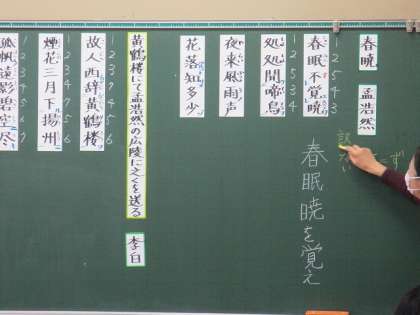 春暁 孟浩然
春眠不覚暁
1 2 5 4 3
処処聞啼鳥
1 2 5 3 4
夜来風雨声
花落知多少
黄鶴楼にて孟浩然の広陵に之くを送る 李白
故人西辞黄鶴楼
1 2 3 7 4 5 6
煙花三月下揚州
1 2 3 4 7 5 6
孤帆遠影碧空尽
1 2 3 4 5 6 7
春眠暁を覚え
ず